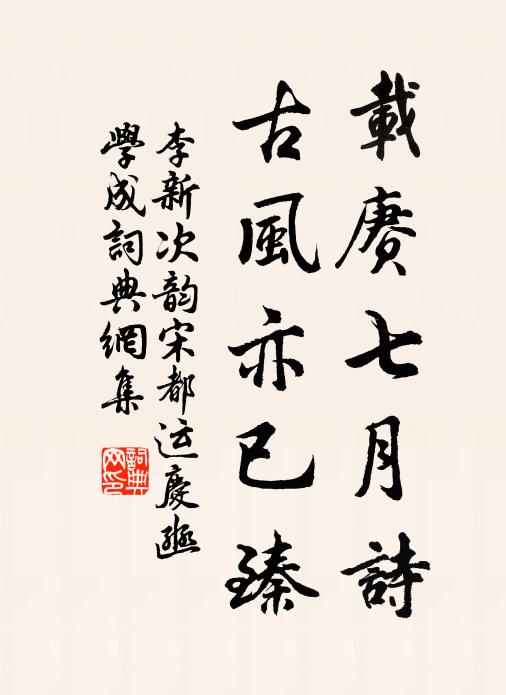 載賡七月詩
古風亦已臻
李新次韵宋都运慶豳
學成詞典網集
詞典网印